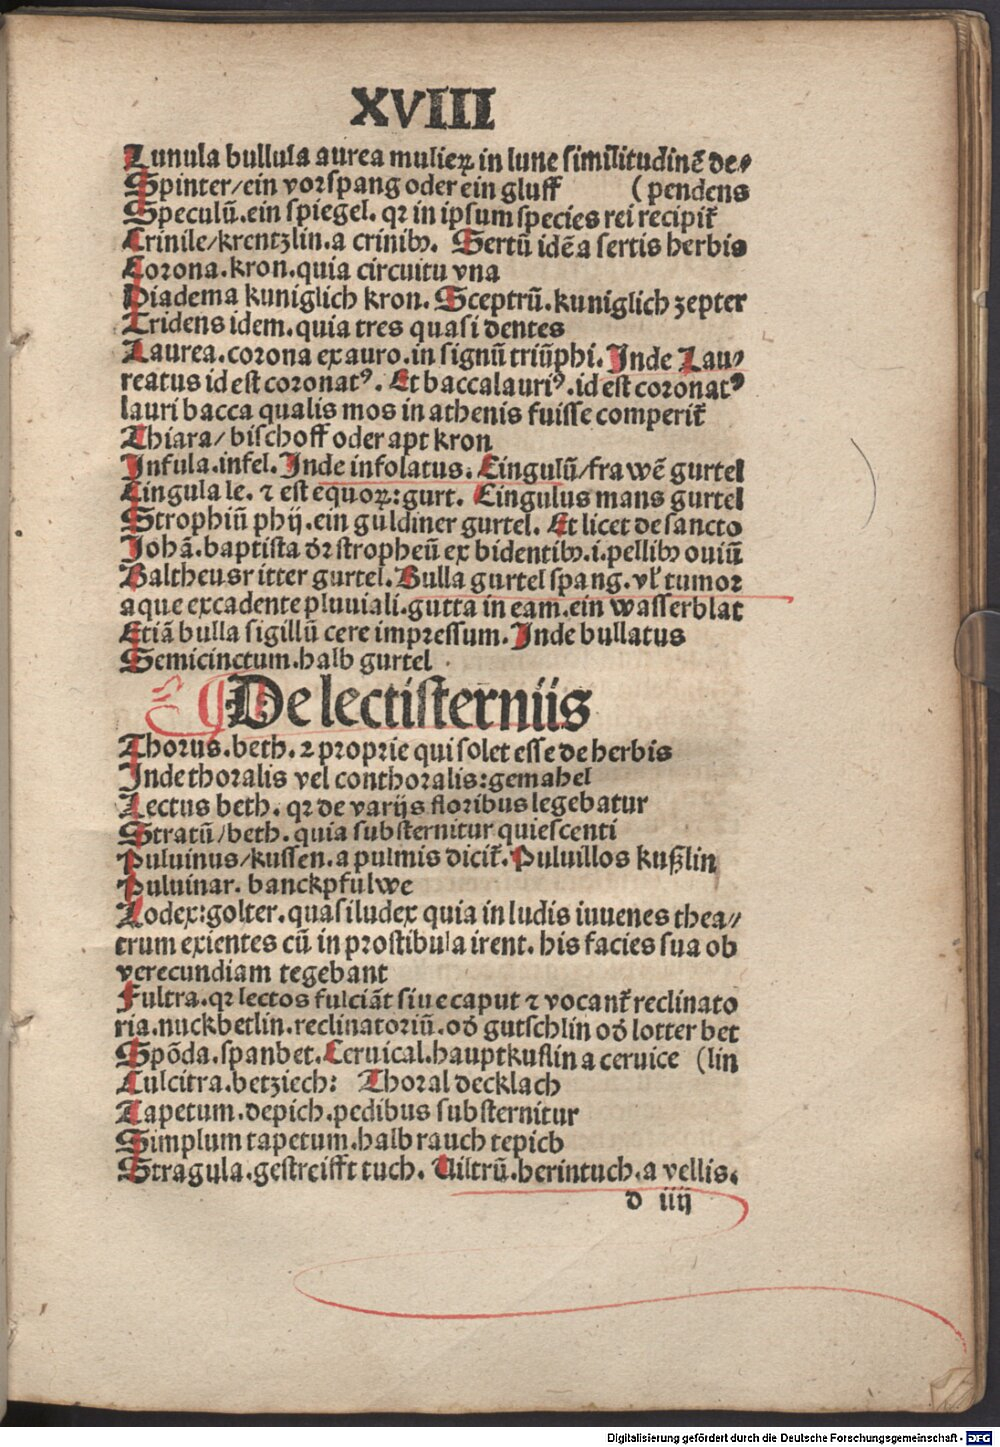 XVIII
Lunula bullula aurea mulieꝝ in lune similitudinē de⸗
Spinter/ein vorspang oder ein gluff (pendens
Speculū.ein spiegel. qꝛ in ipsum species rei recipit̃
Crinile/krentzlin.a crinibꝰ. Sertū idē a sertis herbis
Corona.kron.quia circuitu vna
Diadema kuniglich kron. Sceptrū.kuniglich zepter
Tridens idem.quia tres quasi dentes
Laurea.corona ex auro.in signū triūphi. Inde Lau⸗
reatus id est coronatꝰ. Et baccalauriꝰ.id est coronatꝰ
lauri bacca qualis mos in athenis fuisse comperit̃
Thiara/ bischoff oder apt kron
Infula.infel. Inde infolatus. Cingulū/frawē gurtel
Cingula le. ⁊ est equoꝝ:gurt. Cingulus mans gurtel
Strophiū phij.ein guldiner gurtel. Et licet de sancto
Johā.baptista dꝛ stropheū ex bidentibꝰ.i.pellibꝰ ouiū
Baltheusr itter gurtel. Bulla gurtel spang.vl̕ tumor
aque excadente pluuiali.gutta in eam.ein wasserblat
Etiā bulla sigillū cere impressum. Inde bullatus
Semicinctum.halb gurtel
De lectisterniis
Thorus.beth.⁊ proprie qui solet esse de herbis
Inde thoralis vel conthoralis:gemahel
Lectus beth. qꝛ de varijs floribus legebatur
Stratū/beth. quia substernitur quiescenti
Puluinus/kussen.a pulmis dicit̃. Puluillos kußlin
Puluinar. banckpfulwe
Lodex:golter.quasi ludex quia in ludis iuuenes thea⸗
trum exientes cū in prostibula irent.his facies sua ob
verecundiam tegebant
Fultra.qꝛ lectos fulciāt siue caput ⁊ vocant̃ reclinato
ria.nuckbetlin.reclinatoriū.od̕ gutschlin od̕ lotter bet
Spōda.spanbet. Ceruical.hauptkuslin a ceruice (lin
Culcitra.betziech: Thoral decklach
Tapetum.depich.pedibus substernitur
Simplum tapetum.halb rauch tepich
Stragula.gestreifft tuch. Uiltrū.herintuch.a vellis.
d iiij
Digitalisierung gefördert durch die Deutsche Forschungsgemeinschaft - DFG